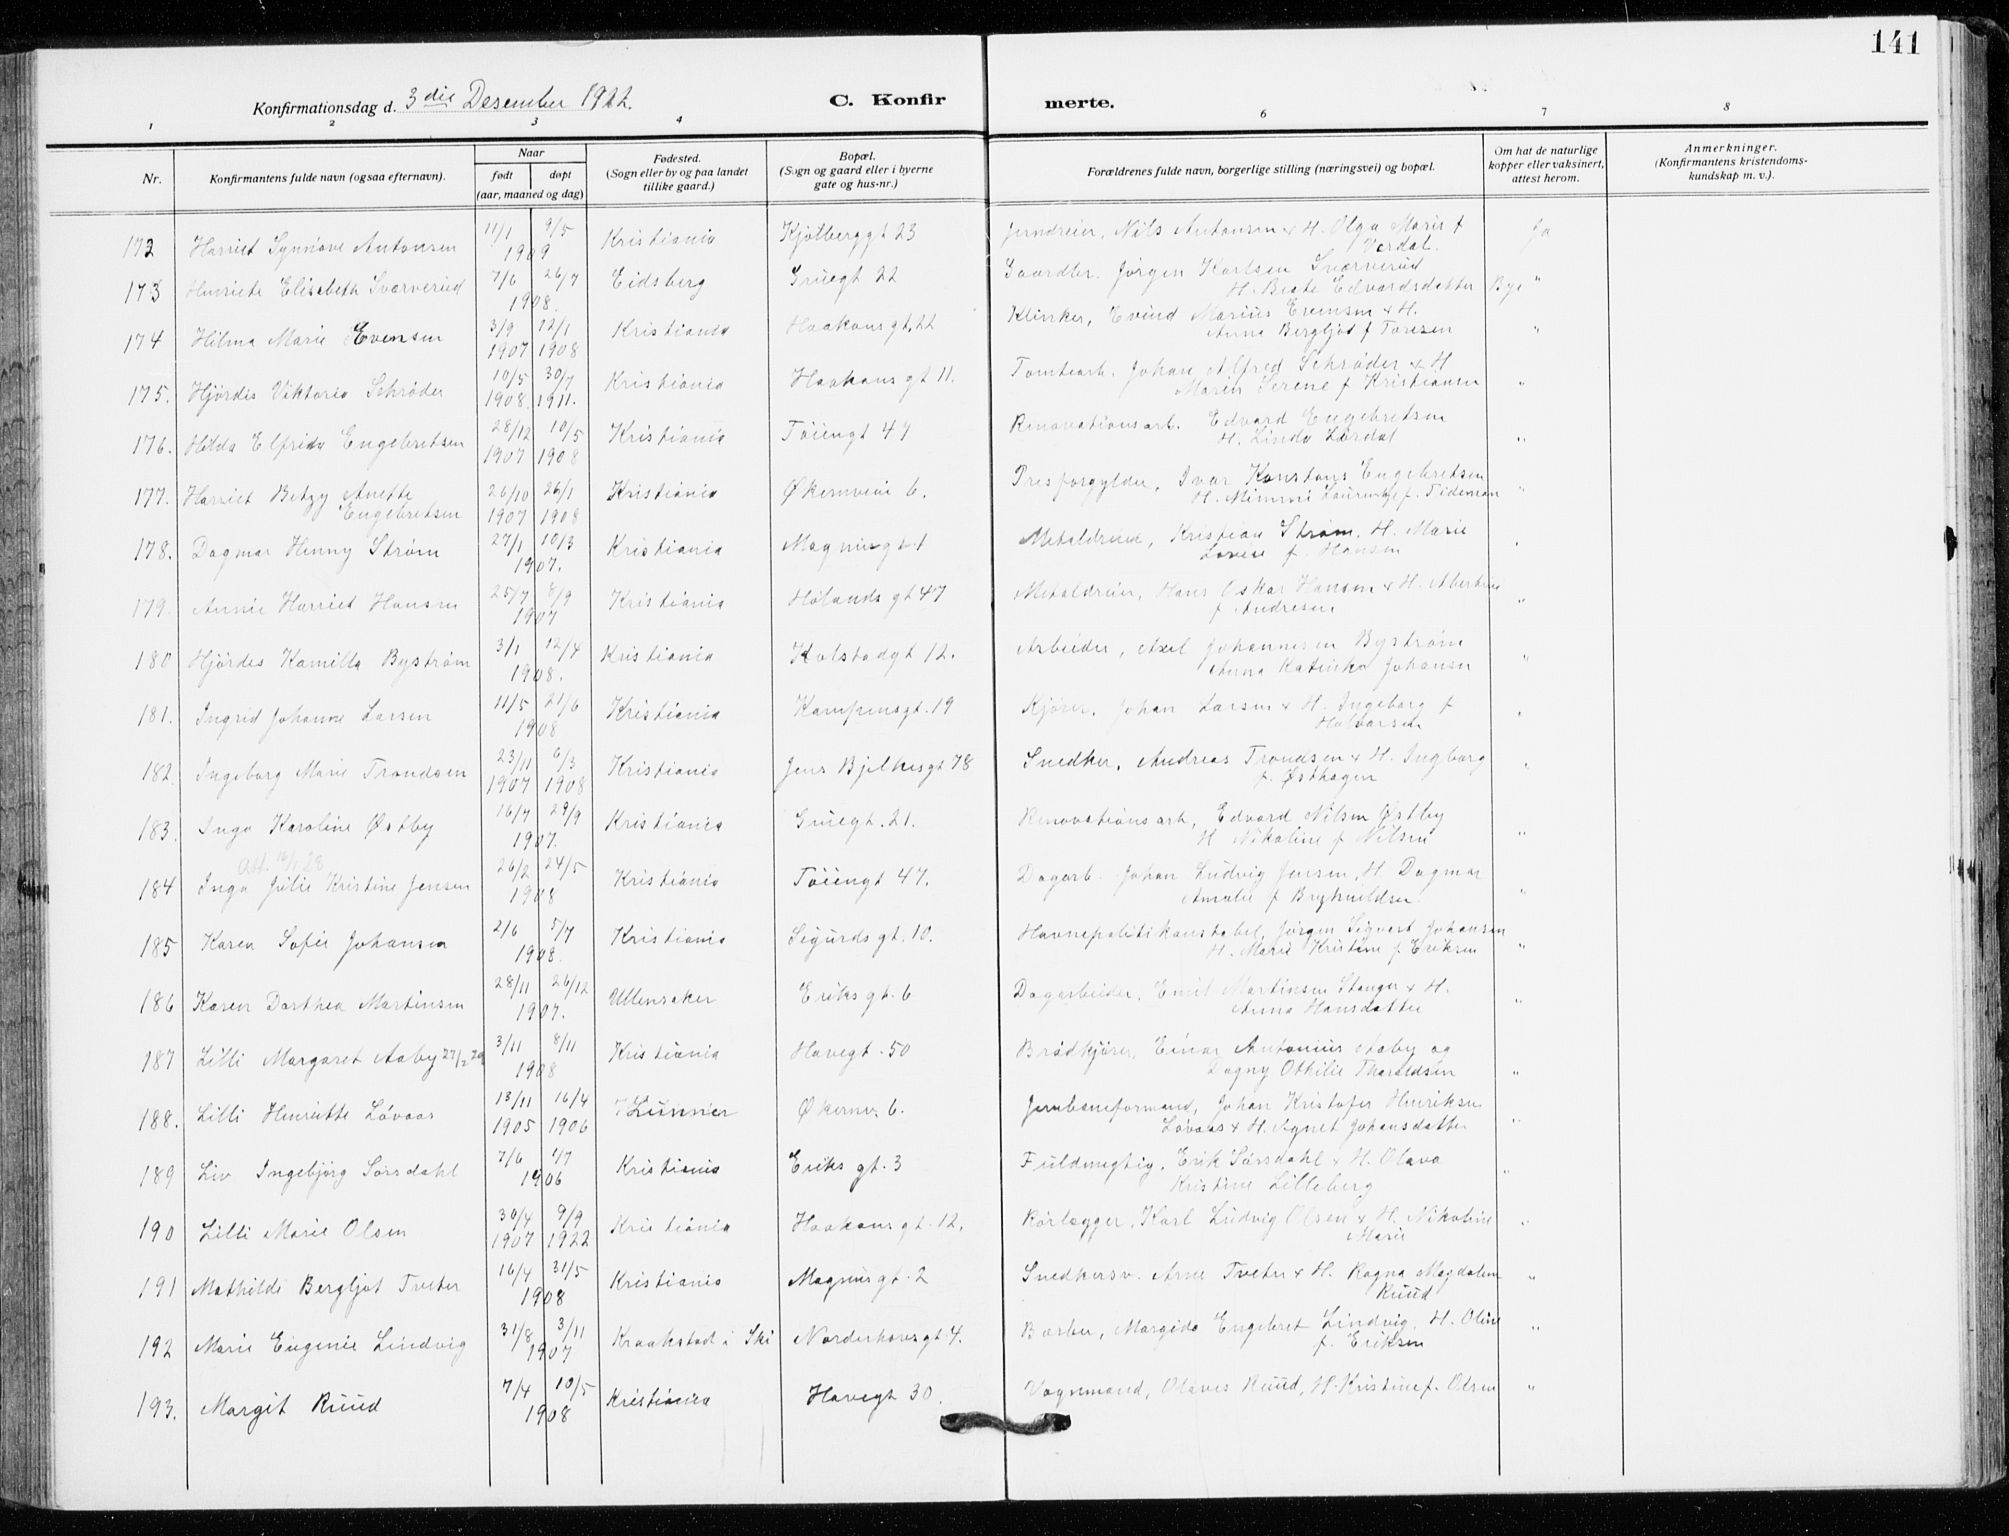 141
Konfirmationsdag d. 3die Desember 1922. C. Konfirmerte.
1 2 3 4 6 7 8
Nr. Konfirmantens fulde navn (ogsaa efternavn). Naar født døpt (aar, maaned og dag) Fødested. (Sogn eller by og paa landet tillike gaard.) Bopæl. (Sogn og gaard eller i byerne gate og hus-nr.) Forældrenes fulde navn, borgerlige stilling (næringsvei) og bopæl. Om hat de naturlige kopper eller vaksinert, attest herom. Anmerkninger. (Konfirmantens kristendoms-kundskap m. v.).
172 Harriet Synnøve Antonsen 11/1 9/5 1909 Kristiania Kjølberggt 23 Jerndreier, Nils Antonsen & H. Olga Marie f Verdal. Ja
173 Henriete Elisabeth Sværverud 7/6 26/7 1908. Eidsberg Gruegt 22 Gaardbr. Jørgen Karlsen Sværverud H. Beate Edvardsdatter Bye "
174 Hilma Marie Evensen 3/9 1907 12/1 1908 Kristiania Haakons gt, 22 Klinker, Evind Marius Evensen & H. Anna Bergljot f Toresen "
175. Hjørdis Viktoria Schrøder 10/5 1908. 30/7 1911. Kristiania Haakons gt 11. Tomtearb. Johan Alfred Schrøder & H Maren Serene f Kristiansen "
176. Hilda Elfrida Engebretsen 28/12 1907 10/5 1908 Kristiania Tøiengt 47 Renovationsarb. Edvard Engebretsen H. Linda Lørdal "
177. Harriet Betzy Anette Engebretsen 26/10 1907 26/1 1908 Kristiania Økernveien 6. Presforgylder, Ivar Konstans Engebretsen H. Mimmi f. Tideman "
178. Dagmar Henny Strøm 27/1 10/3 1907. Kristiania Magnusgt. 1 Metaldreier, Kristian Strøm, H. Marie Lovise f. Hansen "
179. Annie Harriet Hansen 25/7 8/9 1907 Kristiania Hølands gt 47 Metaldreier, Hans Oskar Hansen & H. Albertine f Andresen "
180 Hjørdes Kamilla Bystrøm 3/1 12/4 1908. Kristiania Kolstadgt 12. Arbeider, Axel Johannesen Bystrøm Anna Katinka Johansen "
181. Ingrid Johanne Larsen 11/5 21/6 1908 Kristiania Kampensgt. 19 Kjører, Johan Larsen & H. Ingeborg f Halvorsen "
182. Ingeborg Marie Trondsen 23/11 1907 6/3 1908 Kristiania Jens Bjelkesgt 78 Snedker, Andreas Trondsen & H. Ingborg f. Østhagen "
183. Inga Karoline Østby 16/7 29/9 1907. Kristiania Gruegt. 21. Renovationsarb, Edvard Nilsen Østby H Nikoline f Nilsen "
184 Inga Julie Kristine Jensen 26/2 24/5 1908 Kristiania Tøiengt 47. Dagarb. Johan Ludvig Jensen, H. Dagmar Amalie f Brynhildsen "
185 Karen Sofie Johansen 2/6 5/7 1908. Kristiania Sigurds gt. 10. Havnepolitikonstabel, Jørgen Sigvart Johansen H. Marie Kristine f. Eriksen "
186 Karen Dorthea Martinsen 28/11 26/12 1907. Ullensaker Eriks gt. 6 Dagarbeider, Emil Martinsen Stanger & H. Anna Hansdatter "
187 Lilli Margaret Aaby 3/11 8/11 1908 Kristiania Havegt. 50 Brødkjører, Einar Antonius Aaby og Dagny Othilie Tharaldsen "
188. Lilli Henriette Løvaas 13/11 1905 16/4 1906 Lunner Økernv. 6. Jernbaneformand, Johan Kristofer Henriksen Løvaas & H. Agnet Johansdatter "
189 Liv Ingebjørg Sørsdahl 7/6 1/7 1906 Kristiania Eriks gt. 3 Fuldmegtig, Erik Sørsdahl & H. Olava Kristine Lilleberg "
190 Lilli Marie Olsen 30/4 1907 9/9 1922 Kristiania Haakons gt. 12. Rørlægger, Karl Ludvig Olsen & H. Nikoline Marie "
191 Mathilde Bergljot Tveter 16/4 31/5 1908 Kristiania Magnusgt. 2 Snedkersv. Arne Tveter & H. Ragna Magdalene Ruud "
192 Marie Eugenie Lindvig 31/8 3/11 1907 Kraakstad i Ski Norderhovsgt 4. Barber, Margido Engebret Lindvig, H. Oline f. Eriksen "
193. Margit Ruud 7/4 10/5 1908 Kristiania Havegt 30. Vognmand, Olaves Ruud, H. Kristine f. Olsen "